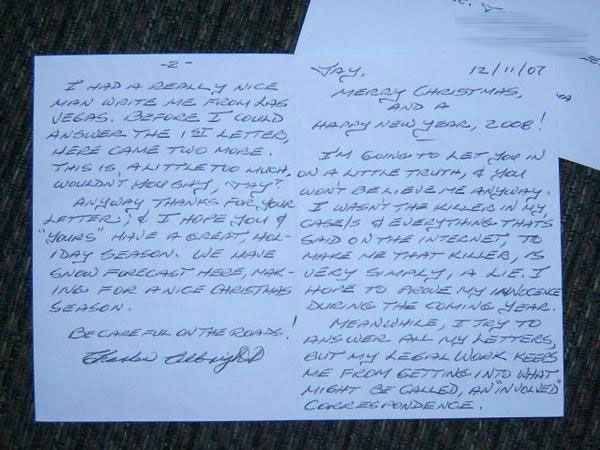 JAY, 12/11/07
MERRY CHRISTMAS,
AND A
HAPPY NEW YEAR, 2008!
I'M GOING TO LET YOU IN
ON A LITTLE TRUTH, & YOU
WON'T BELIEVE ME ANYWAY.
I WASN'T THE KILLER IN MY
CASE/S & EVERYTHING THATS
SAID ON THE INTERNET, TO
MAKE ME THAT KILLER, IS
VERY SIMPLY, A LIE. I
HOPE TO PROVE MY INNOCENCE
DURING THE COMING YEAR.
MEANWHILE, I TRY TO
ANSWER ALL MY LETTERS,
BUT MY LEGAL WORK KEEPS
ME FROM GETTING INTO WHAT
MIGHT BE CALLED, AN "INVOLVED"
CORRESPONDENCE.
-2-
I HAD A REALLY NICE
MAN WRITE ME FROM LAS
VEGAS. BEFORE I COULD
ANSWER THE 1ST LETTER,
HERE CAME TWO MORE.
THIS IS, A LITTLE TOO MUCH,
WOULDN'T YOU SAY, JAY?
ANYWAY THANKS FOR YOUR
LETTER, & I HOPE YOU &
"YOURS" HAVE A GREAT, HOL-
IDAY SEASON. WE HAVE
SNOW FORECAST HERE, MAK-
ING FOR A NICE CHRISTMAS
SEASON.
BE CAREFUL ON THE ROADS!
Charles Albright